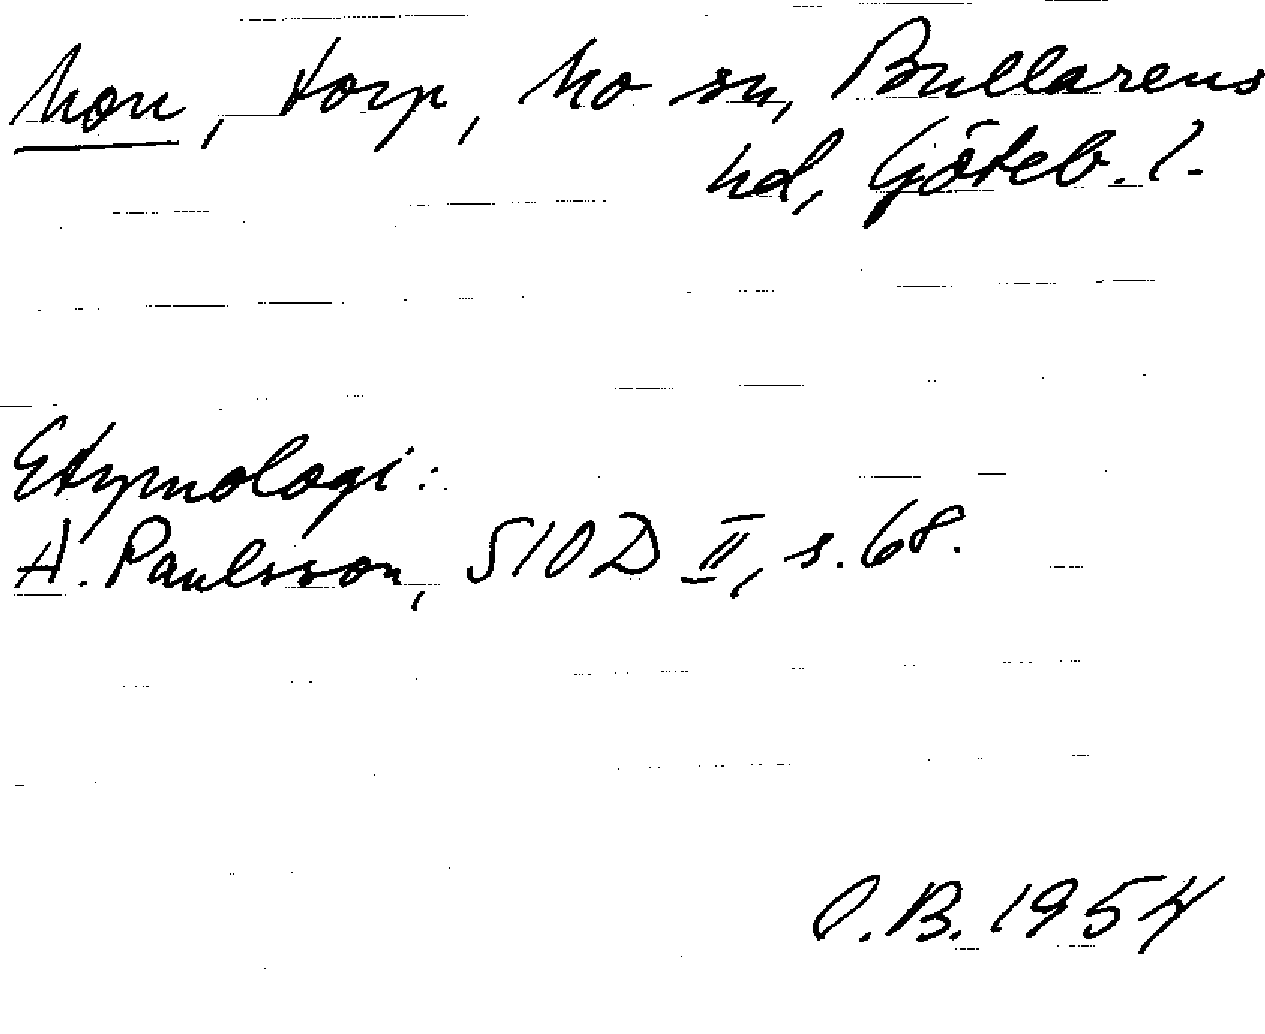 Mon, torp, Mo sn, Bullarens
hd, Göteb. l.
Etymologi:
A. Paulsson, SIOD II, s. 68.
O.B. 1954